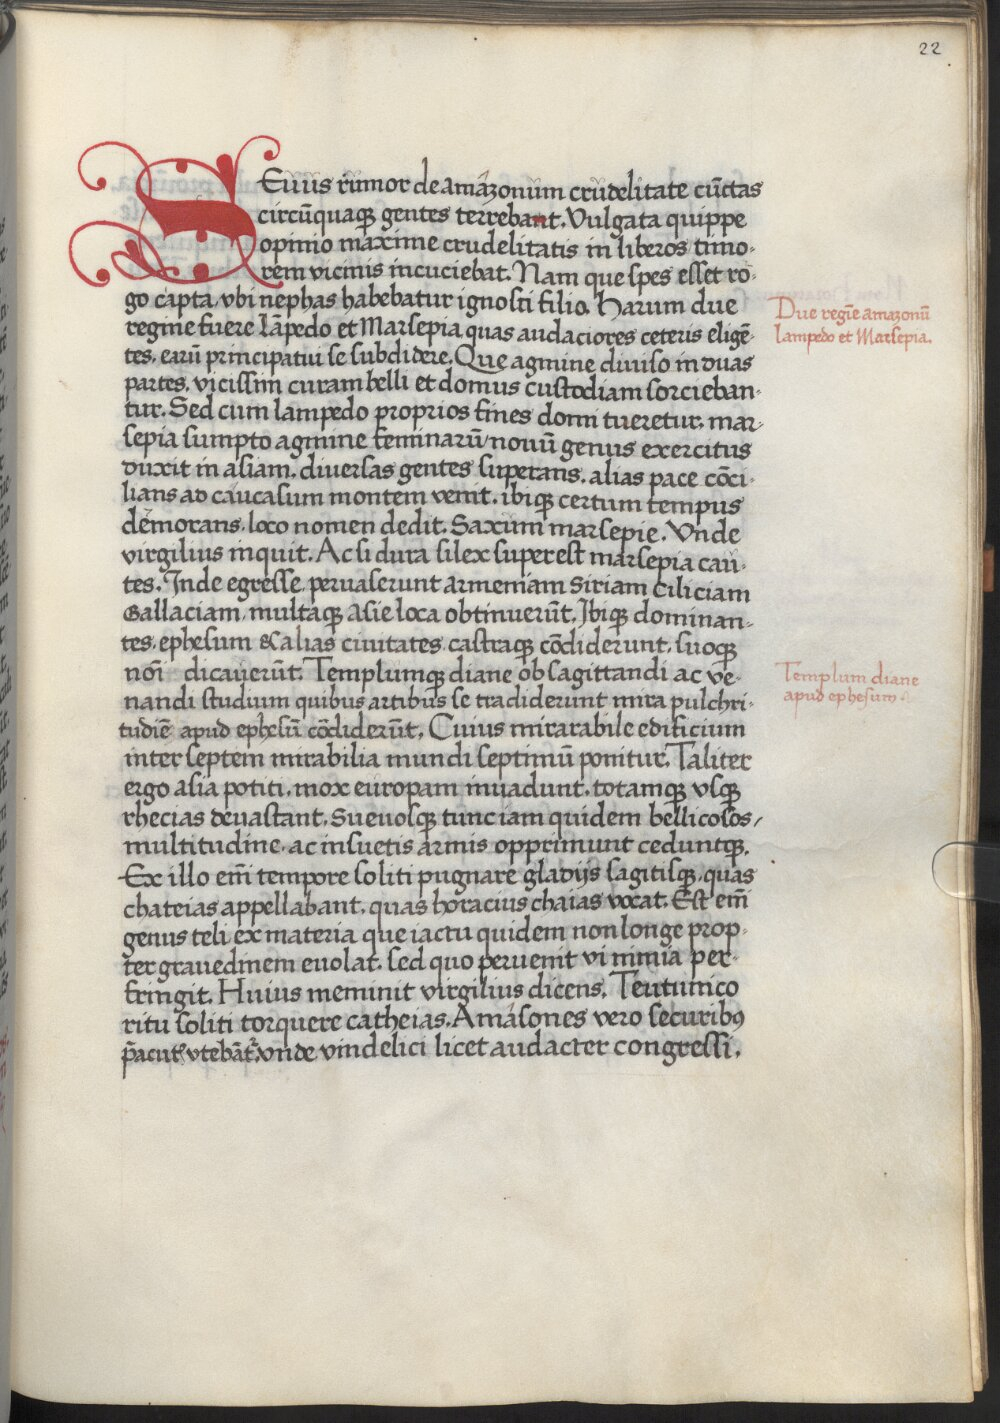 22
SEuus rumor de amazonum crudelitate cūctas
circūquaqꝫ gentes terrebant. Vulgata quippe
opinio maxime crudelitatis in liberos timo-
rem vicinis incuciebat. Nam que spes esset ro-
go capta, vbi nephas habebatur ignosci filio. Harum due
regine fuere Lāpedo et Marsepia, quas audaciores ceteris eligē-
tes, earū principatiu se subdidere. Que agmine diuiso in duas
partes, vicissim curam belli et domus custodiam sorcieban-
tur. Sed cum lampedo proprios fines domi tueretur, mar-
sepia sumpto agmine feminarū, nouū genus exercitus
duxit in asiam, diuersas gentes superans, alias pace cōci-
lians ad caucasum montem venit, ibiqꝫ certum tempus
demorans, loco nomen dedit. Saxum marsepie. Vnde
virgilius inquit. Ac si dura silex superest marsepia cau-
tes. Inde egresse, peruaserunt armeniam Siriam Ciliciam
Gallaciam, multaqꝫ Asie loca obtinuerūt. Ibiqꝫ dominan-
tes, ephesum & alias ciuitates, castraqꝫ cōdiderunt, suoqꝫ
noī dicauerūt. Templumqꝫ diane ob sagittandi ac ve-
nandi studium quibus artibus se tradiderunt mira pulchri-
tudīe apud ephesū cōdiderūt. Cuius mirarabile edificium
inter septem mirabilia mundi septimū ponitur. Taliter
ergo asia potiti, mox europam inuadunt, totamqꝫ vsqꝫ
rhecias deuastant, Sueuosqꝫ tunc iam quidem bellicosos,
multitudine, ac insuetis armis opprimunt ceduntqꝫ.
Ex illo em̄ tempore soliti pugnare gladijs sagitisqꝫ, quas
chateias appellabant, quas horacius chaias vocat. Est em̄
genus teli ex materia que iactu quidem non longe prop-
ter grauedinem euolat, sed quo peruenit vi nimia per-
fringit. Huius meminit virgilius dicens. Teutunico
ritu soliti torquere catheias. Amasones vero securibꝯ
p̄acut' vtebāt', vnde vindelici licet audacter congressi,
Due regīe amazonū
lampedo et Marsepia.
Templum diane
apud ephesum.